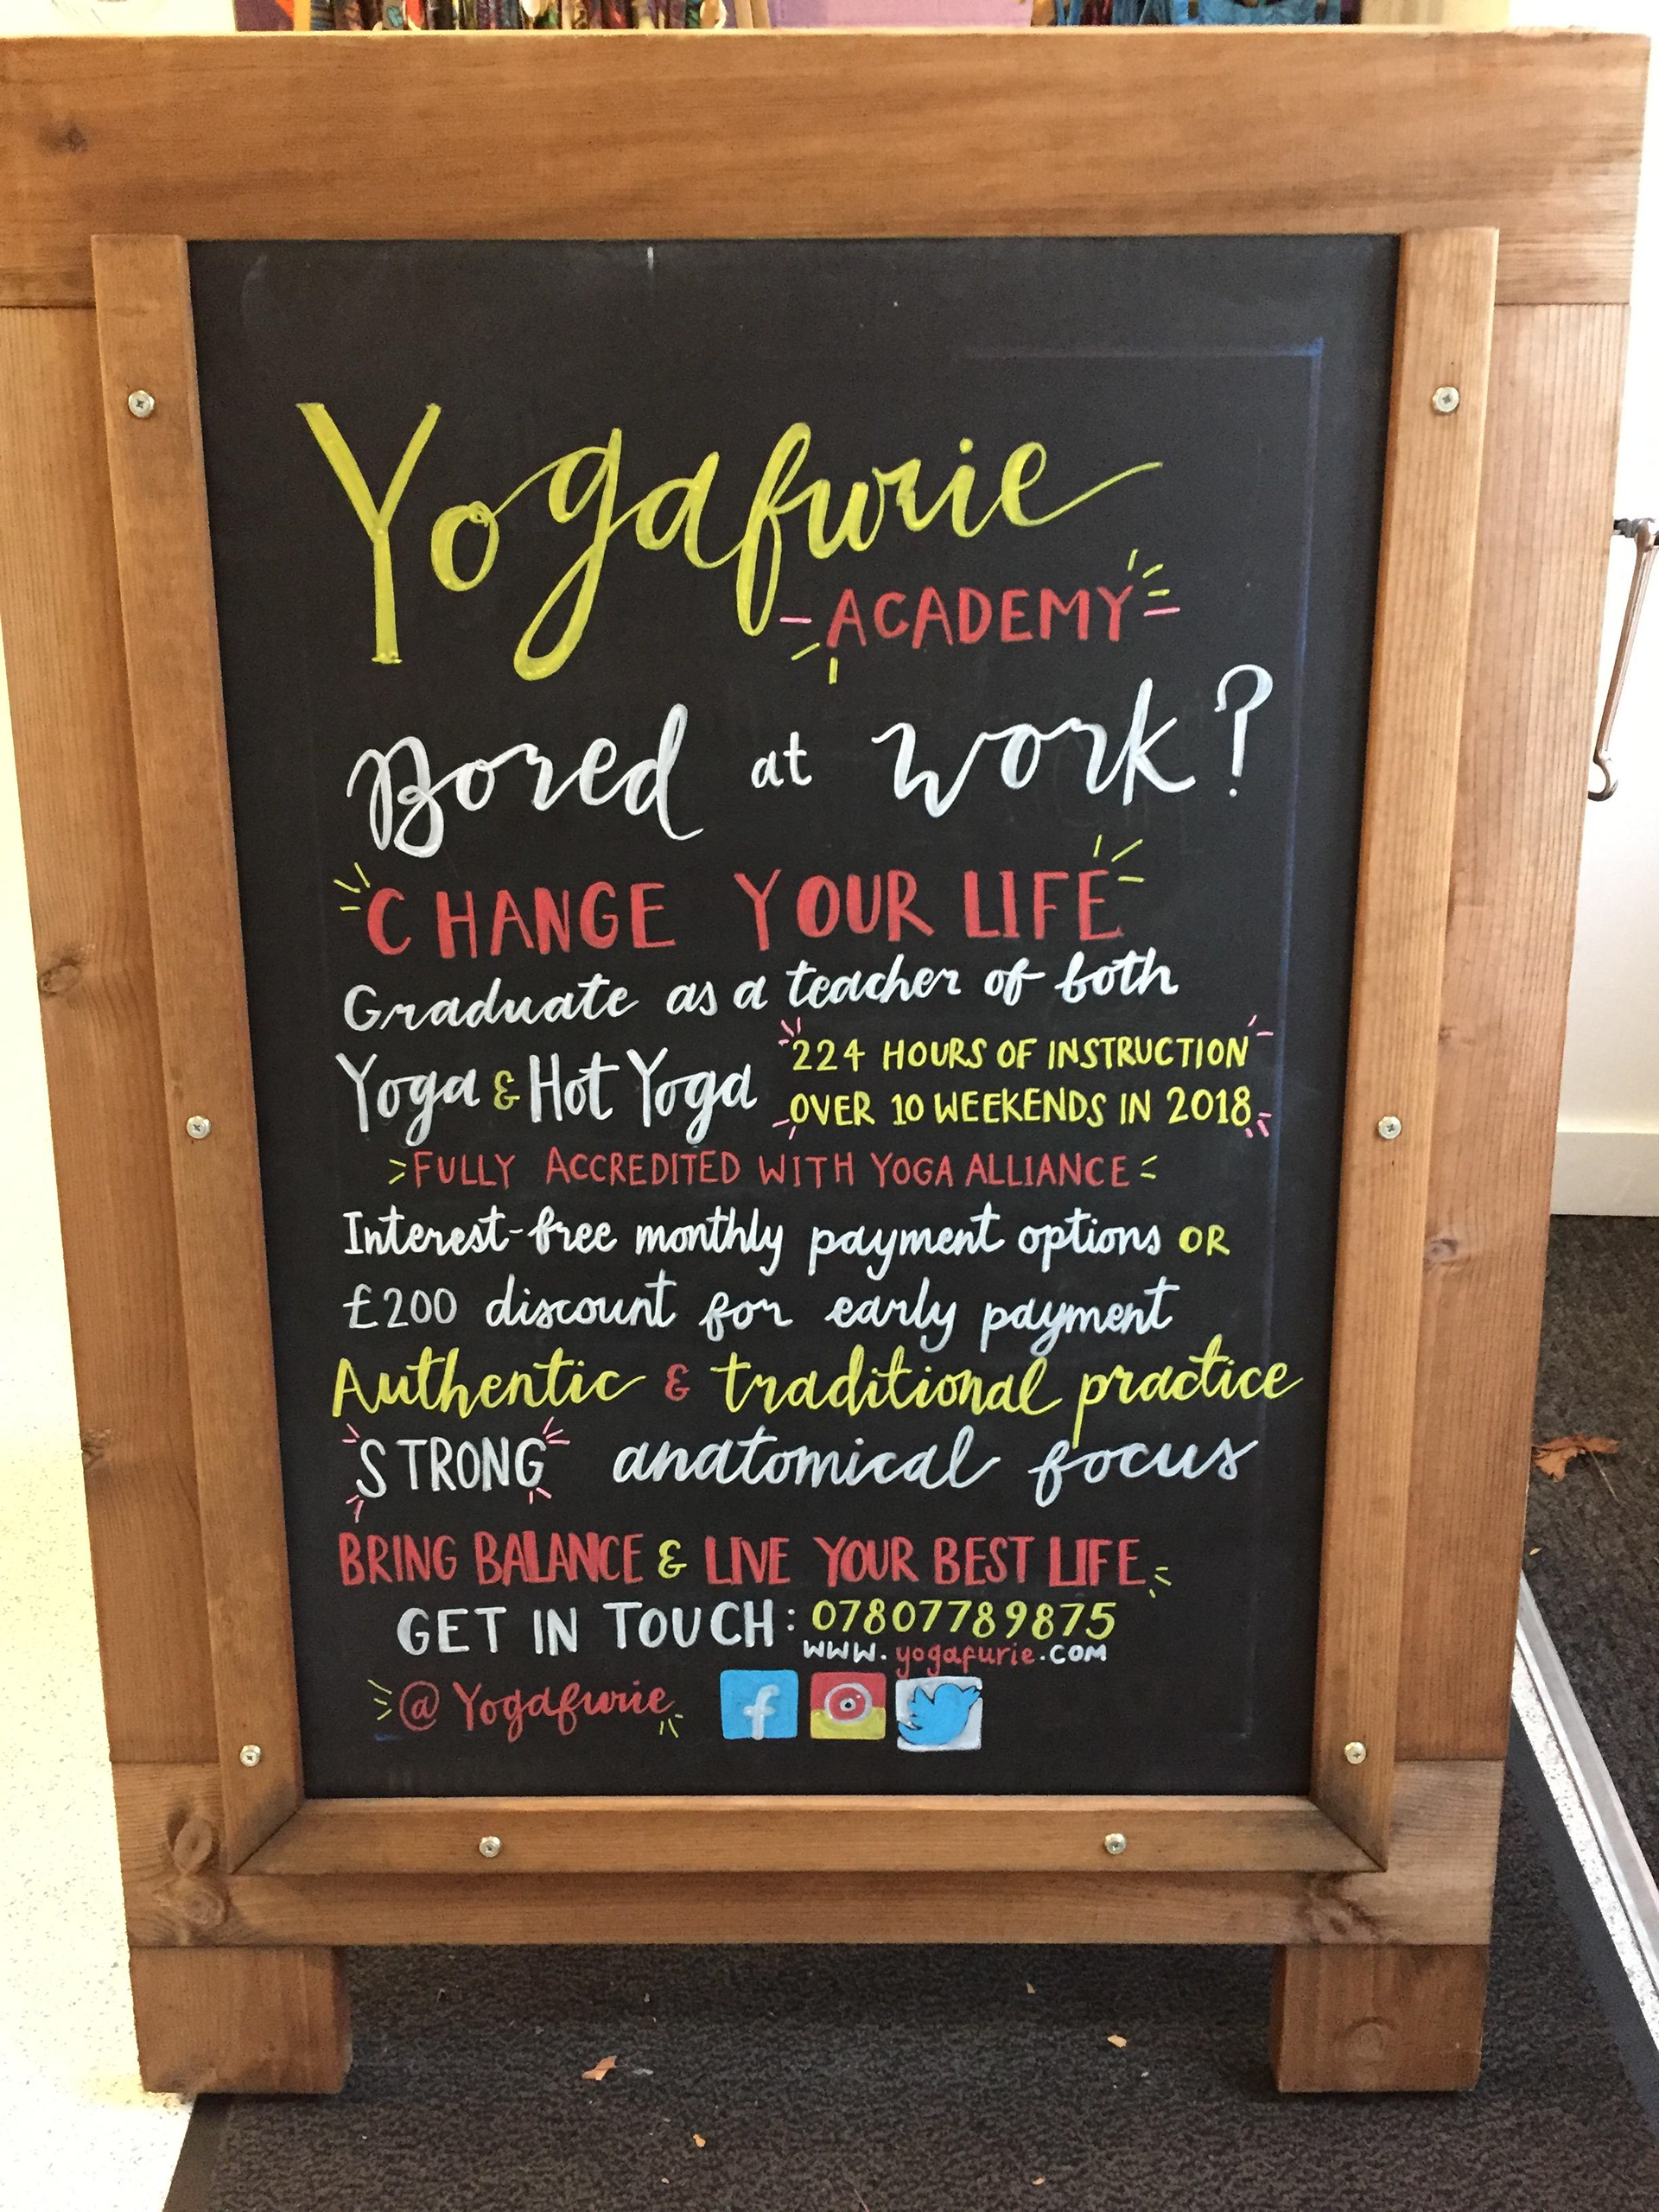 Yogafurie
ACADEMY
Bored at work?
CHANGE YOUR LIFE
Graduate as a teacher of both
Yoga & Hot Yoga
224 HOURS OF INSTRUCTION
OVER 10 WEEKENDS IN 2018
FULLY ACCREDITED WITH YOGA ALLIANCE
Interest-free monthly payment options OR
£200 discount for early payment
Authentic & traditional practice
STRONG anatomical focus
BRING BALANCE & LIVE YOUR BEST LIFE
GET IN TOUCH: 07807789875
www.yogafurie.com
@Yogafurie f